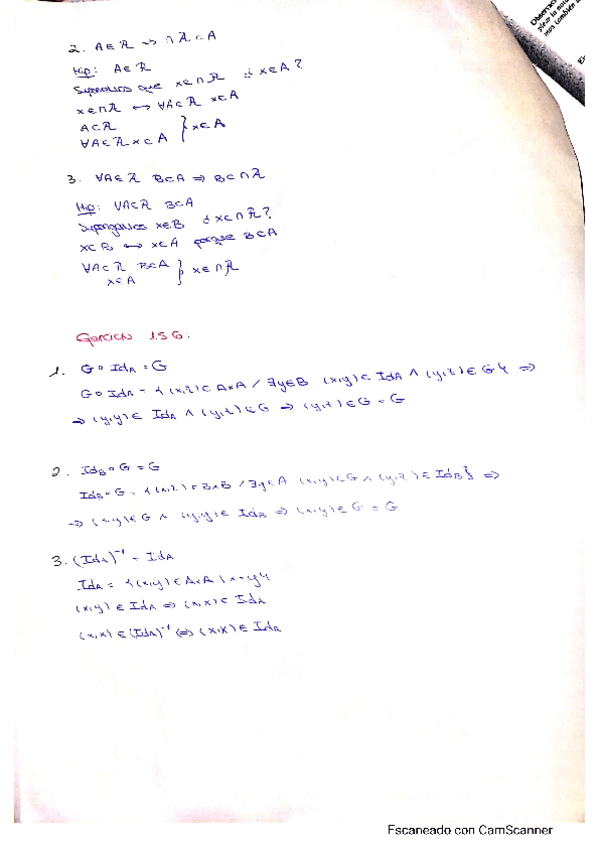 2. A∈ℛ → ∩ℛ⊂A
Hip: A∈ℛ
Supongamos que x∈∩ℛ ¿ x∈A?
x∈∩ℛ ↔ ∀A∈ℛ x∈A
A∈ℛ
∀A∈ℛ x∈A } x∈A
3. ∀A∈ℛ B⊂A ⇒ B⊂∩ℛ
Hip: ∀A∈ℛ B⊂A
Supongamos x∈B ¿ x∈∩ℛ?
x∈B ↔ x∈A porque B⊂A
∀A∈ℛ B⊂A
x∈A } x∈∩ℛ
Ejercicio 1.5 G:
1. G∘Id_A = G
G∘Id_A = {(x,z)∈A×A / ∃y∈B (x,y)∈Id_A ∧ (y,z)∈G} ⇒
⇒ (y,y)∈ Id_A ∧ (y,z)∈G ⇒ (y,z)∈G = G
2. Id_B∘G = G
Id_B∘G = {(x,z)∈B×B / ∃y∈A (x,y)∈G ∧ (y,z)∈Id_B} ⇒
⇒ (x,y)∈G ∧ (y,y)∈ Id_B ⇒ (x,y)∈G = G
3. (Id_A)⁻¹ = Id_A
Id_A = {(x,y)∈A×A | x=y}
(x,y)∈Id_A ⇒ (x,x)∈ Id_A
(x,x)∈(Id_A)⁻¹ ⇔ (x,x)∈ Id_A
Escaneado con CamScanner